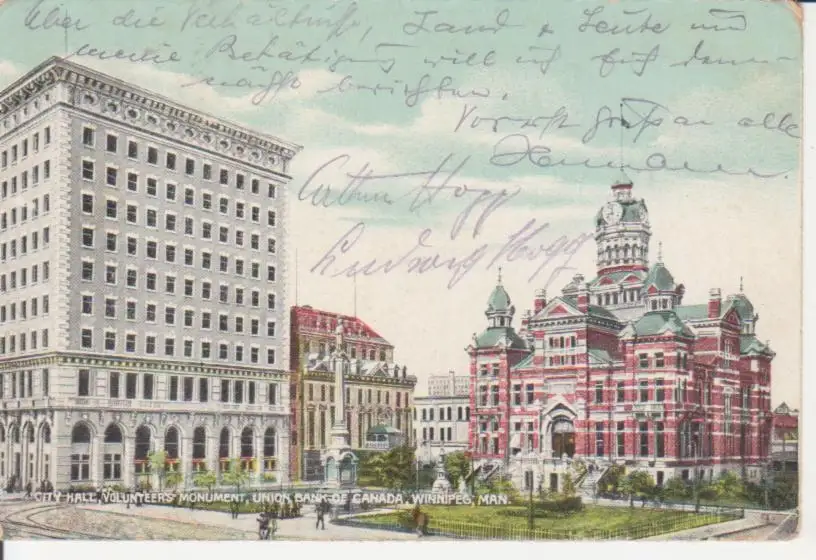 Über die Verhältnisse, Land & Leute und
meine Betätigung will ich Euch dem-
nächst berichten.
Vorerst grüßt an alle
Hermann.
Arthur Hopp
Ludwig Hopp
CITY HALL, VOLUNTEERS MONUMENT, UNION BANK OF CANADA, WINNIPEG, MAN.